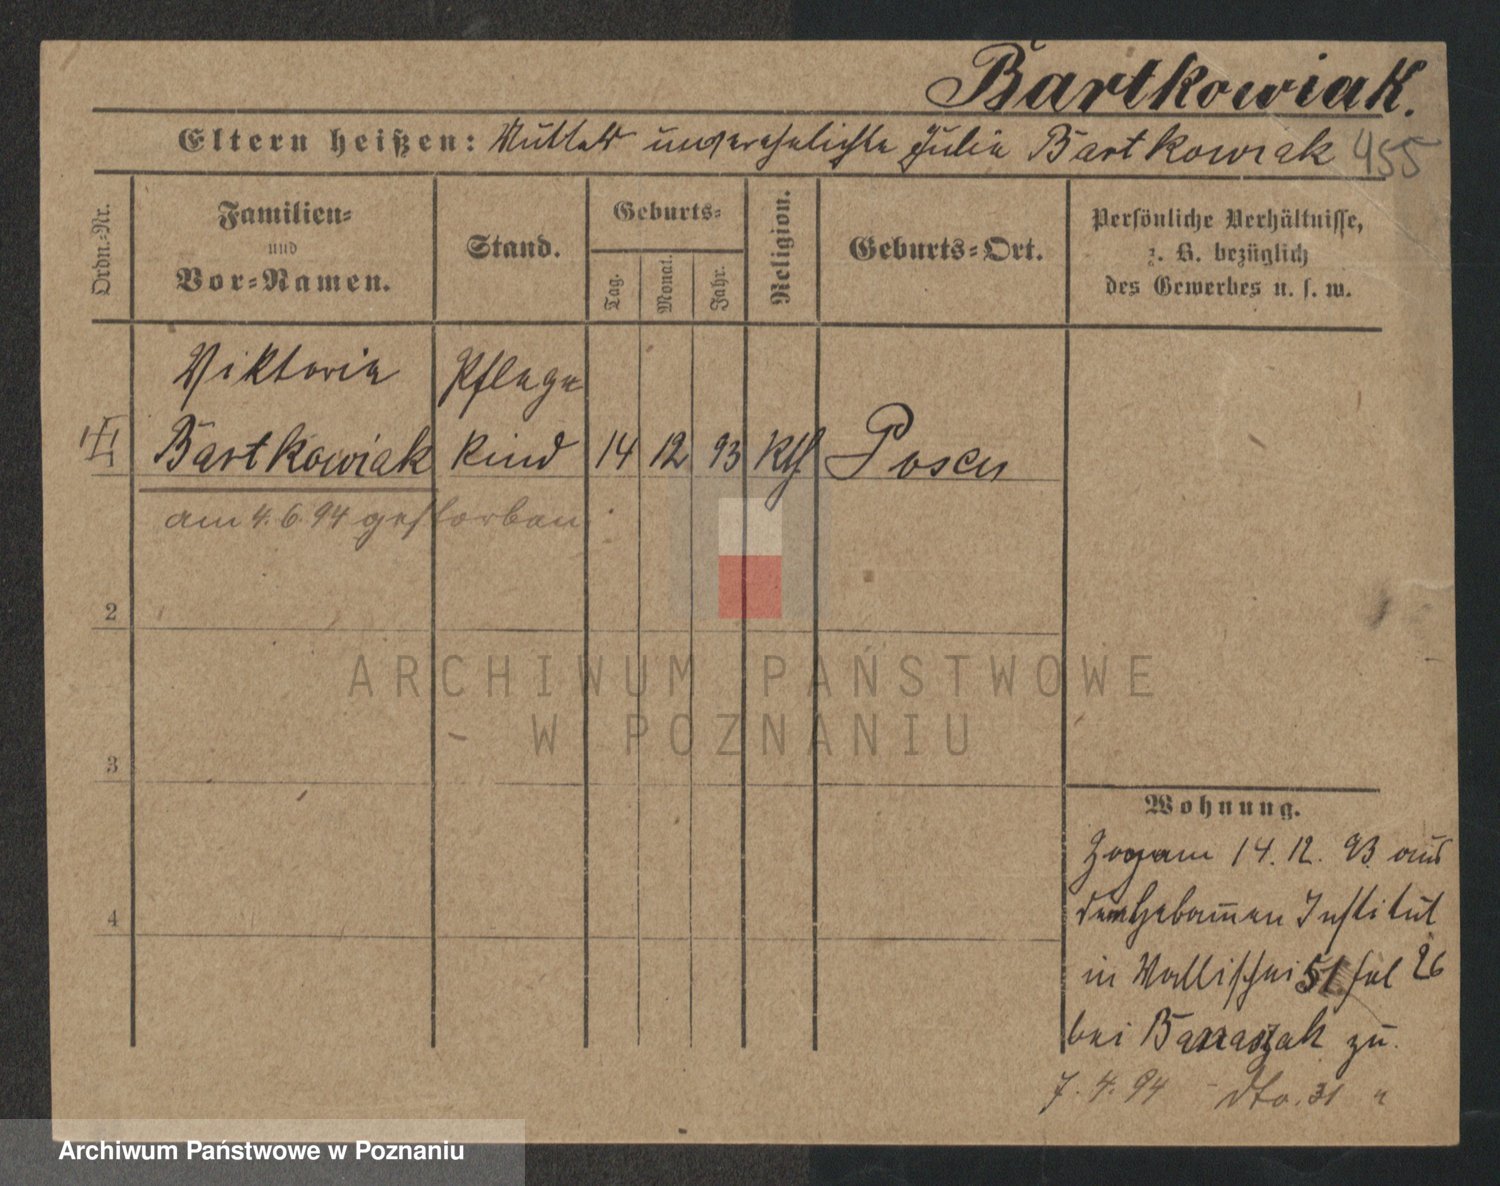 Bartkowiak.
Eltern heißen: Mutter unverehelichte Julie Bartkowiak 455
Ordn.-Nr.
Familien-
und
Vor-Namen.
Stand.
Geburts-
Tag.
Monat.
Jahr.
Religion.
Geburts-Ort.
Persönliche Verhältnisse,
z. B. bezüglich
des Gewerbes u. s. w.
Viktoria Pflege
Bartkowiak kind 14 12 93 kth. Posen
am 4.6.94 gestorben.
2
ARCHIWUM PAŃSTWOWE
W POZNANIU
3
4
Wohnung.
Zog am 14. 12. 93 aus
dem Hebammen Institut
in Wallischei 51 fol 26
bei Banaszak zu.
7. 4. 94 - dto. 31 "
Archiwum Państwowe w Poznaniu